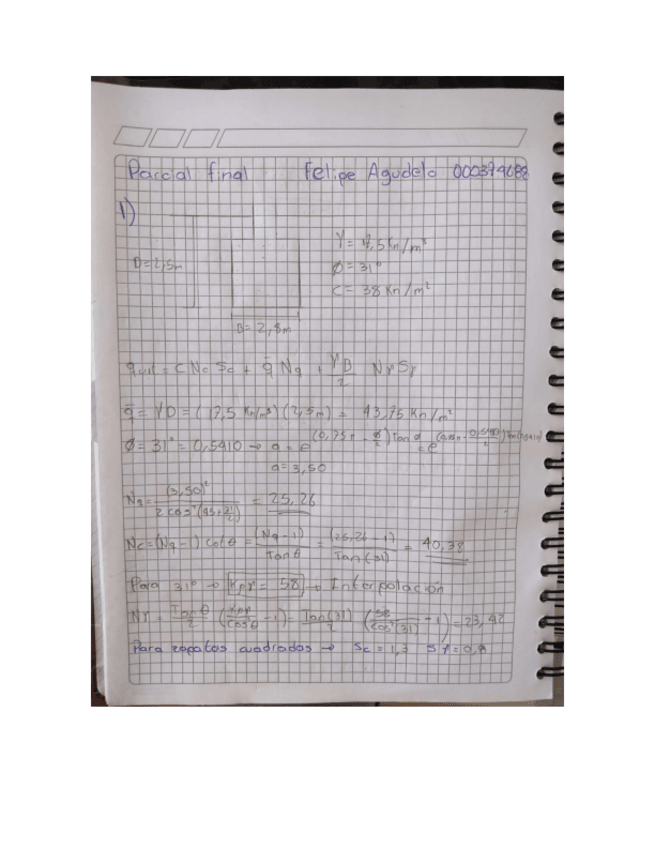 Parcial final Felipe Agudelo 000379688
1)
γ = 17,5 Kn/m³
D=2,5m
Ø = 31°
C = 38 Kn/m²
B= 2,8m
qult = C Nc Sc + q̄ Nq + γB/2 Nγ Sγ
q̄ = γD = (17,5 Kn/m³)(2,5m) = 43,75 Kn/m²
Ø = 31° = 0,5410 → a = e^(0,75π - Ø/2) tan Ø = e^(0,75π - 0,5410/2) tan(0,5410)
a = 3,50
Nq = (3,50)² / 2 cos²(45+31/2) = 25,26
Nc = (Nq - 1) cot θ = (Nq - 1)/Tan θ = (25,26 - 1)/Tan(31) = 40,38
Para 31° → Kpr = 58 → Interpolación
Nγ = Tan θ/2 (Kpr/cos²θ - 1) = Tan(31)/2 (58/cos²(31) - 1) = 23,42
Para zapatas cuadradas → Sc = 1,3 Sγ = 0,8